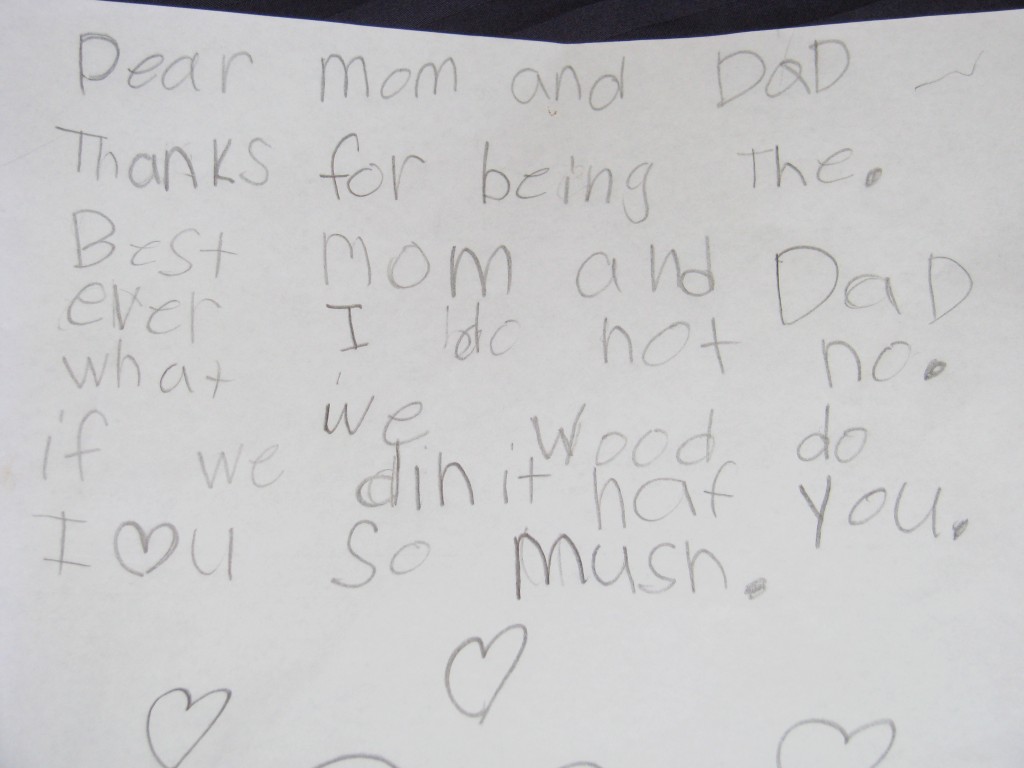 Dear mom and DaD
Thanks for being The.
Best mom and DaD
ever I do not no.
what we wood do
if we dinit haf you.
I ♡ u so mush.